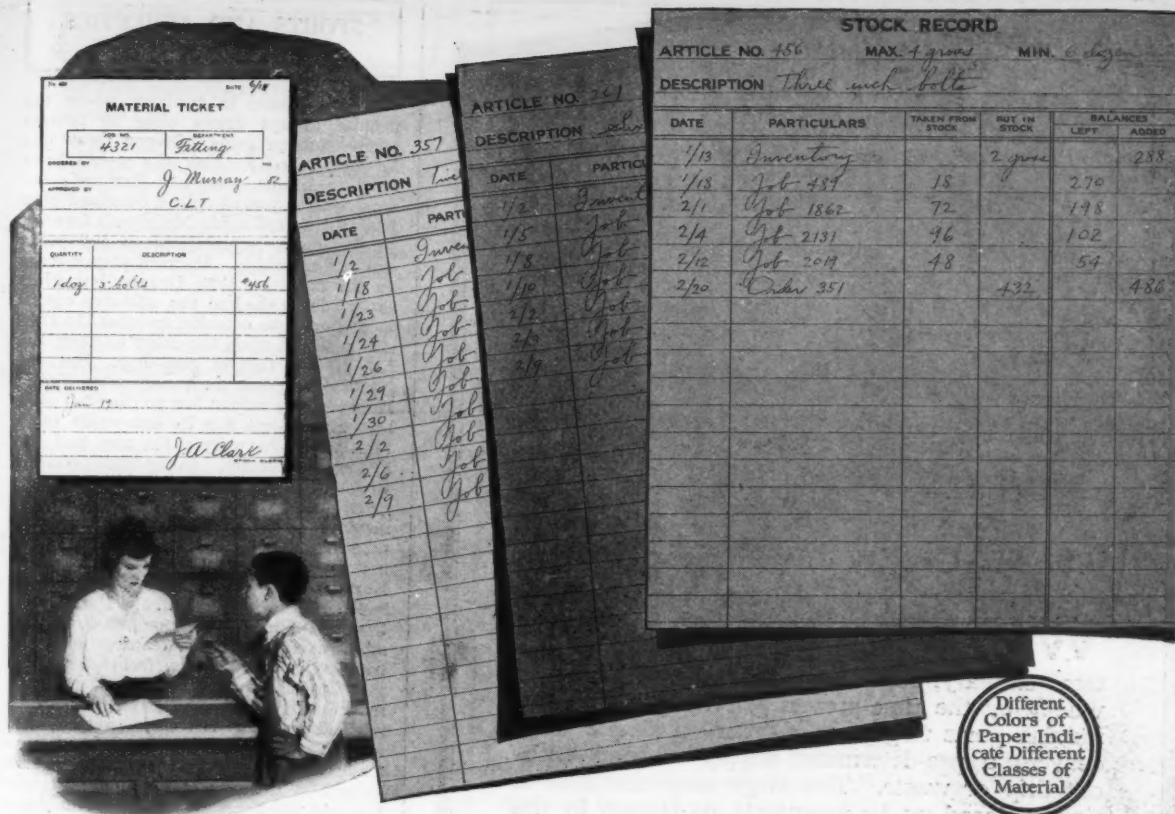 DATE 6/18
MATERIAL TICKET
JOB NO. DEPARTMENT
4321 Fitting
ORDERED BY NO.
J Murray 52
APPROVED BY
C.L.T
QUANTITY DESCRIPTION
1 doz 3" bolts #456
DATE DELIVERED
Jan 19
J.A Clark
STOCK CLERK
ARTICLE NO. 357
DESCRIPTION
DATE PARTI
1/2 Inven
1/18 Job
1/23 Job
1/24 Job
1/26 Job
1/29 Job
1/30 Job
2/2 Job
2/6 Job
2/9 Job
ARTICLE NO. 261
DESCRIPTION
DATE PARTICU
1/2 Invent
1/5 Job
1/8 Job
1/10 Job
2/2 Job
2/3 Job
2/9 Job
STOCK RECORD
ARTICLE NO. 456 MAX. 4 gross MIN. 6 dozen
DESCRIPTION Three inch bolts
DATE PARTICULARS TAKEN FROM STOCK PUT IN STOCK BALANCES
LEFT ADDED
1/13 Inventory 2 gross 288
1/18 Job 489 18 270
2/1 Job 1862 72 198
2/4 Job 2131 96 102
2/12 Job 2019 48 54
2/20 Order 351 432 486
Different
Colors of
Paper Indi-
cate Different
Classes of
Material